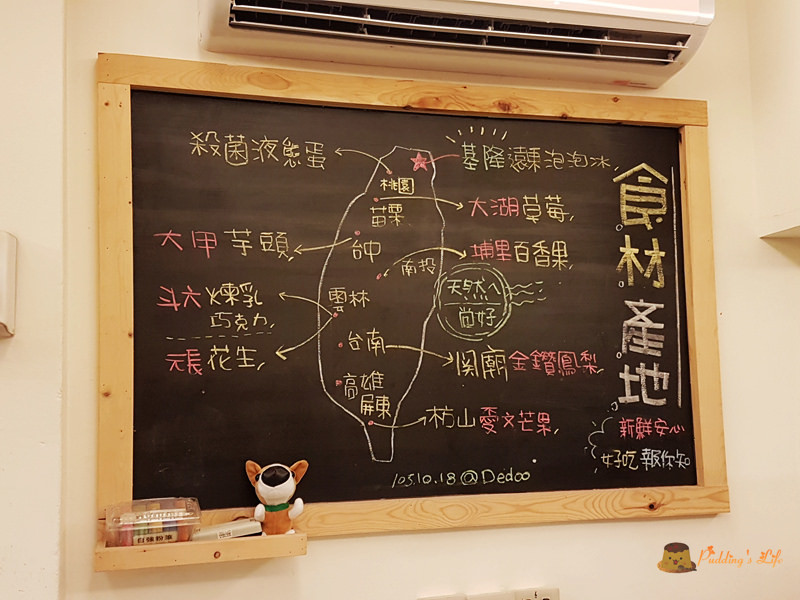 食材產地
新鮮安心
好吃報你知
殺菌液態蛋
基隆 遠東泡泡冰
桃園
苗栗
大湖草莓
大甲芋頭
台中
南投
埔里百香果
天然へ
尚好
斗六煉乳
巧克力
雲林
元長花生
台南
関廟金鑽鳳梨
高雄
屏東
枋山愛文芒果
105.10.18@Dedoo
自強粉筆
Pudding's Life